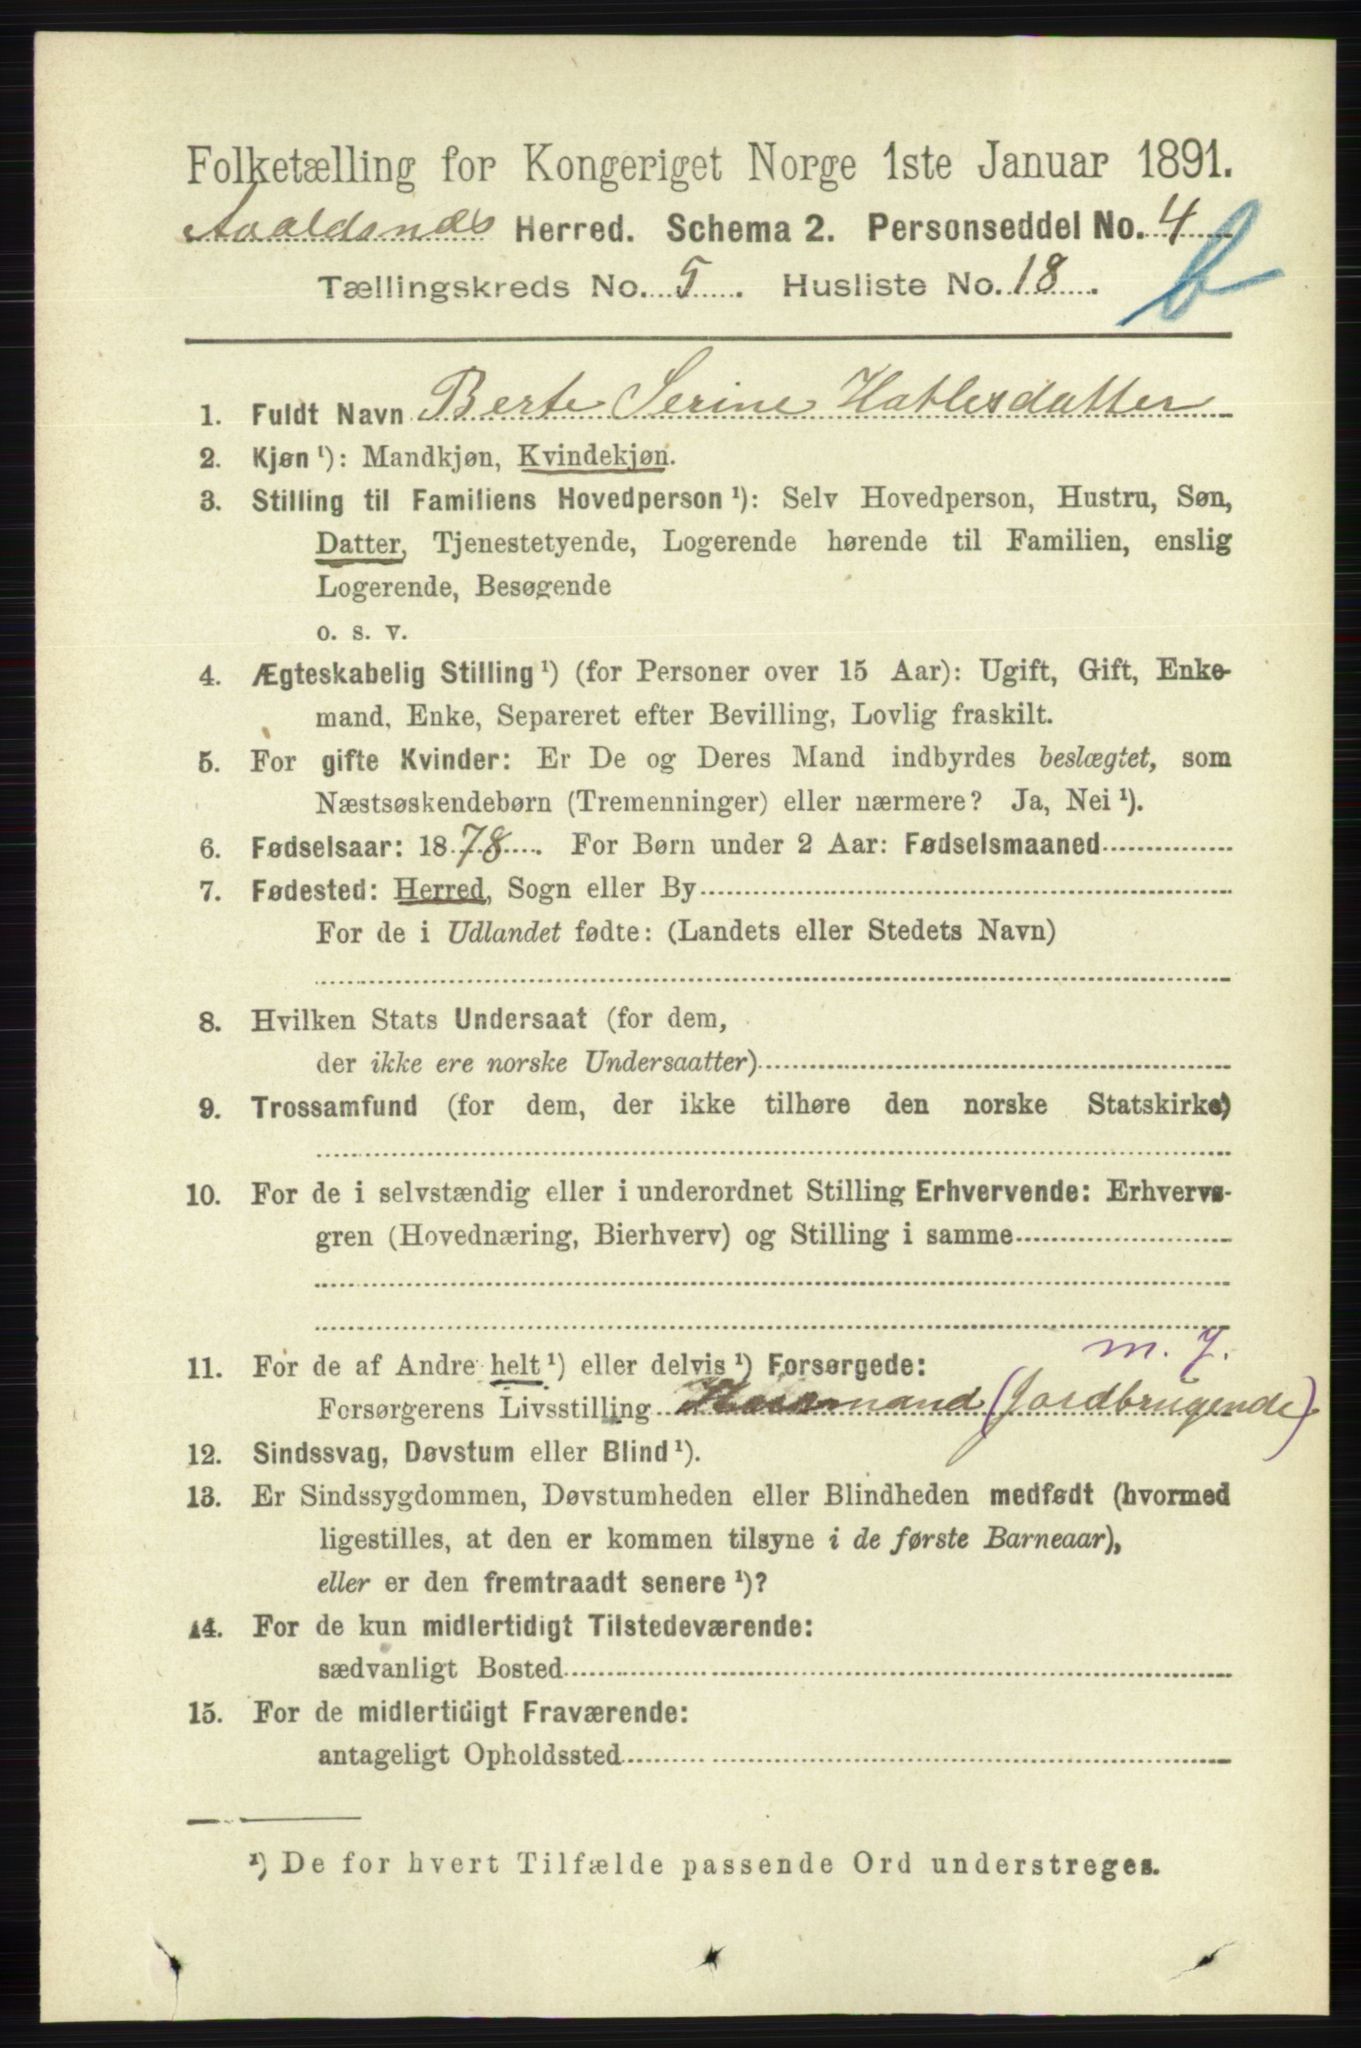 Folketælling for Kongeriget Norge 1ste Januar 1891.
Avaldsnæs Herred. Schema 2. Personseddel No. 4
b
Tællingskreds No. 5. Husliste No. 18.
1. Fuldt Navn Berte Serine Hatlesdatter
2. Kjøn ¹): Mandkjøn, Kvindekjøn.
3. Stilling til Familiens Hovedperson ¹): Selv Hovedperson, Hustru, Søn,
Datter, Tjenestetyende, Logerende hørende til Familien, enslig
Logerende, Besøgende
o. s. v.
4. Ægteskabelig Stilling ¹) (for Personer over 15 Aar): Ugift, Gift, Enke-
mand, Enke, Separeret efter Bevilling, Lovlig fraskilt.
5. For gifte Kvinder: Er De og Deres Mand indbyrdes beslægtet, som
Næstsøskendebørn (Tremenninger) eller nærmere? Ja, Nei ¹).
6. Fødselsaar: 1878. For Børn under 2 Aar: Fødselsmaaned
7. Fødested: Herred, Sogn eller By
For de i Udlandet fødte: (Landets eller Stedets Navn)
8. Hvilken Stats Undersaat (for dem,
der ikke ere norske Undersaatter)
9. Trossamfund (for dem, der ikke tilhøre den norske Statskirke)
10. For de i selvstændig eller i underordnet Stilling Erhvervende: Erhvervs-
gren (Hovednæring, Bierhverv) og Stilling i samme
m. J.
11. For de af Andre helt ¹) eller delvis ¹) Forsørgede:
Forsørgerens Livsstilling Husmand (Jordbrugende)
12. Sindssvag, Døvstum eller Blind ¹).
13. Er Sindssygdommen, Døvstumheden eller Blindheden medfødt (hvormed
ligestilles, at den er kommen tilsyne i de første Barneaar),
eller er den fremtraadt senere ¹)?
14. For de kun midlertidigt Tilstedeværende:
sædvanligt Bosted
15. For de midlertidigt Fraværende:
antageligt Opholdssted
¹) De for hvert Tilfælde passende Ord understreges.